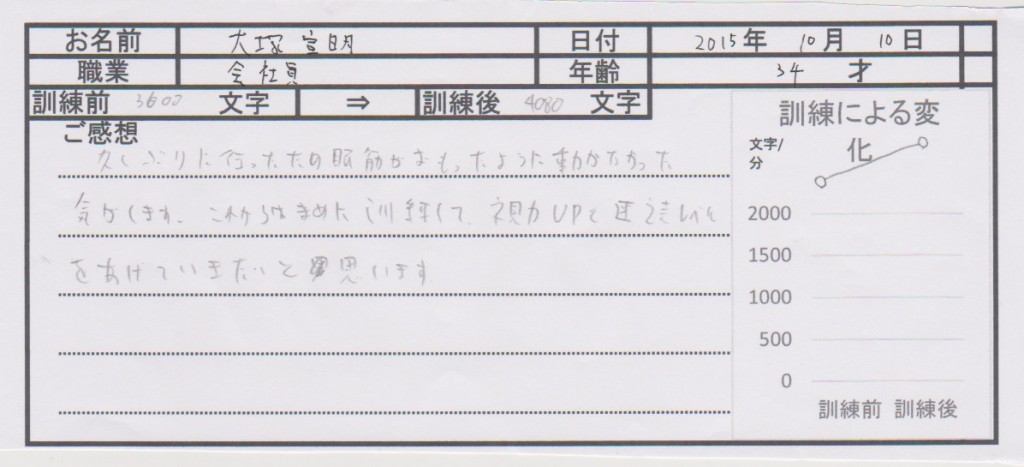 お名前 大塚 宣明 日付 2015年 10月 10日
職業 会社員 年齢 34 才
訓練前 3600 文字 ⇒ 訓練後 4080 文字
ご感想
久しぶりに行ったため眼筋がおもったように動かなかった
気がします。これからはまめに訓練して、視力UPと速読レベル
をあげていきたいと思います
訓練による変
化
文字/
分
2000
1500
1000
500
0
訓練前 訓練後